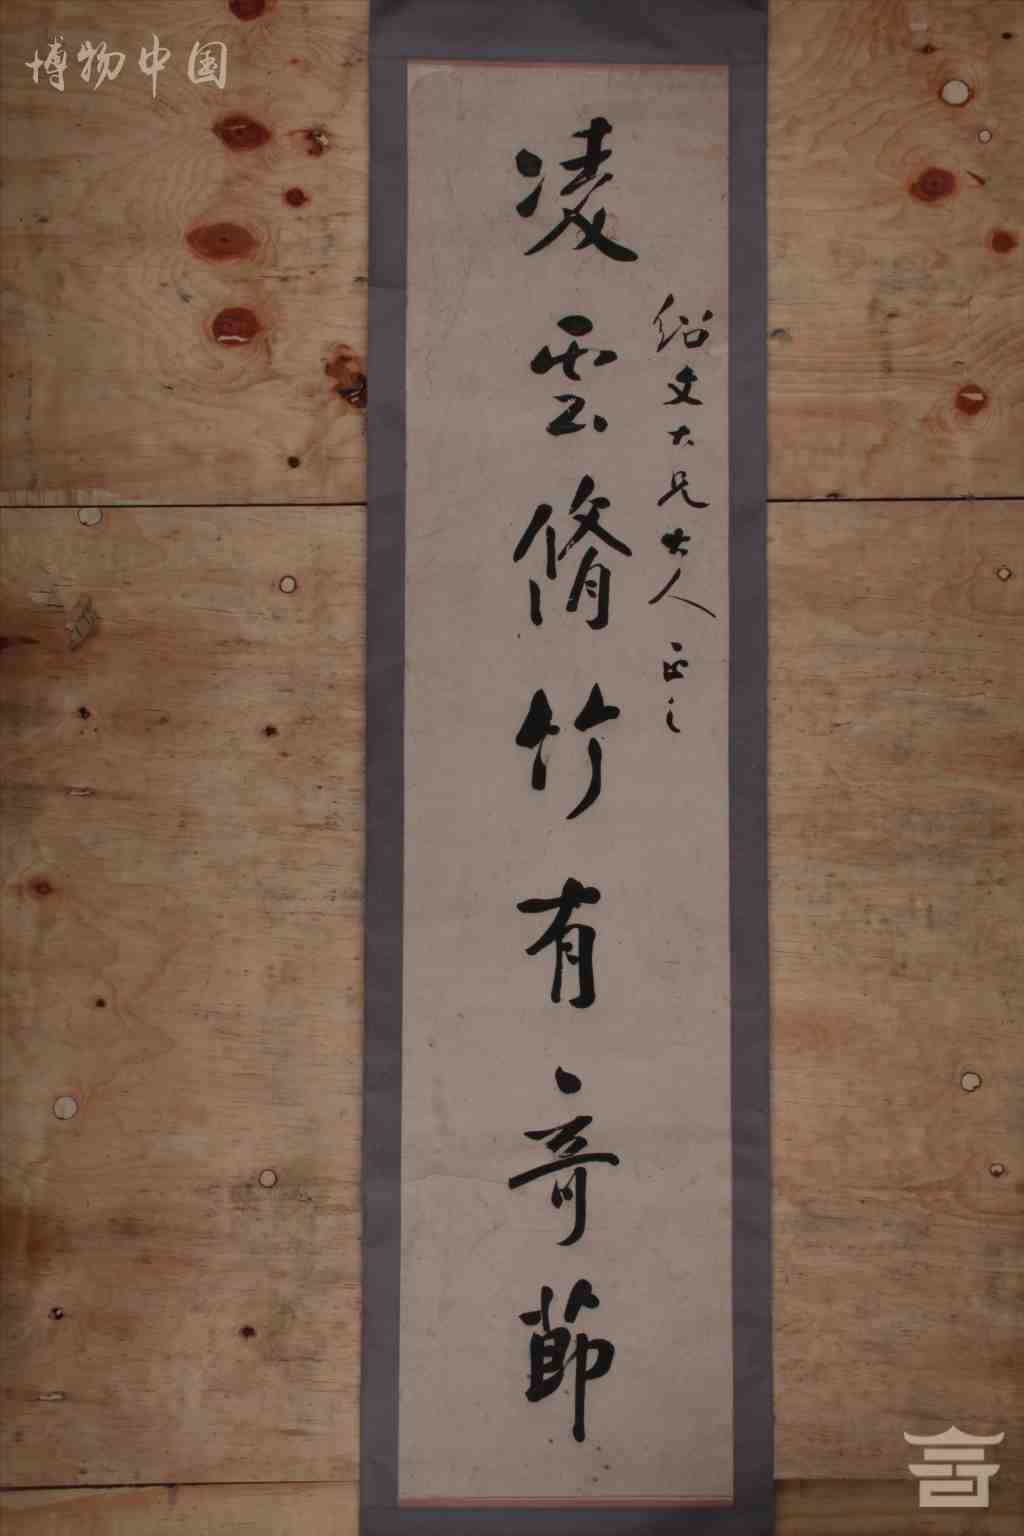 博物中国
紹文大兄大人正之
凌雲脩竹有奇節